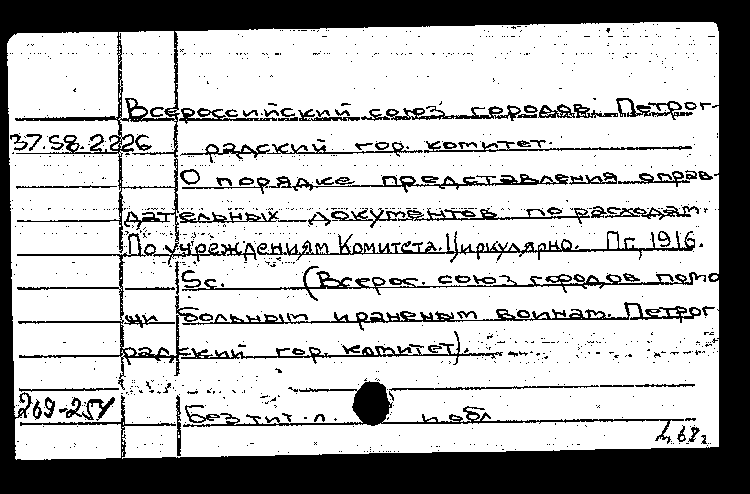 Всероссийский союз городов. Петрог-
37.58.2.226 радский гор. комитет.
О порядке представления оправ-
дательных документов по расходам.
По учреждениям Комитета. Циркулярно. Пг., 1916.
5с. (Всерос. союз городов помо
щи больным и раненым воинам. Петрог
радский гор. комитет).
269-254 Без тит. л. и обл
1,68г